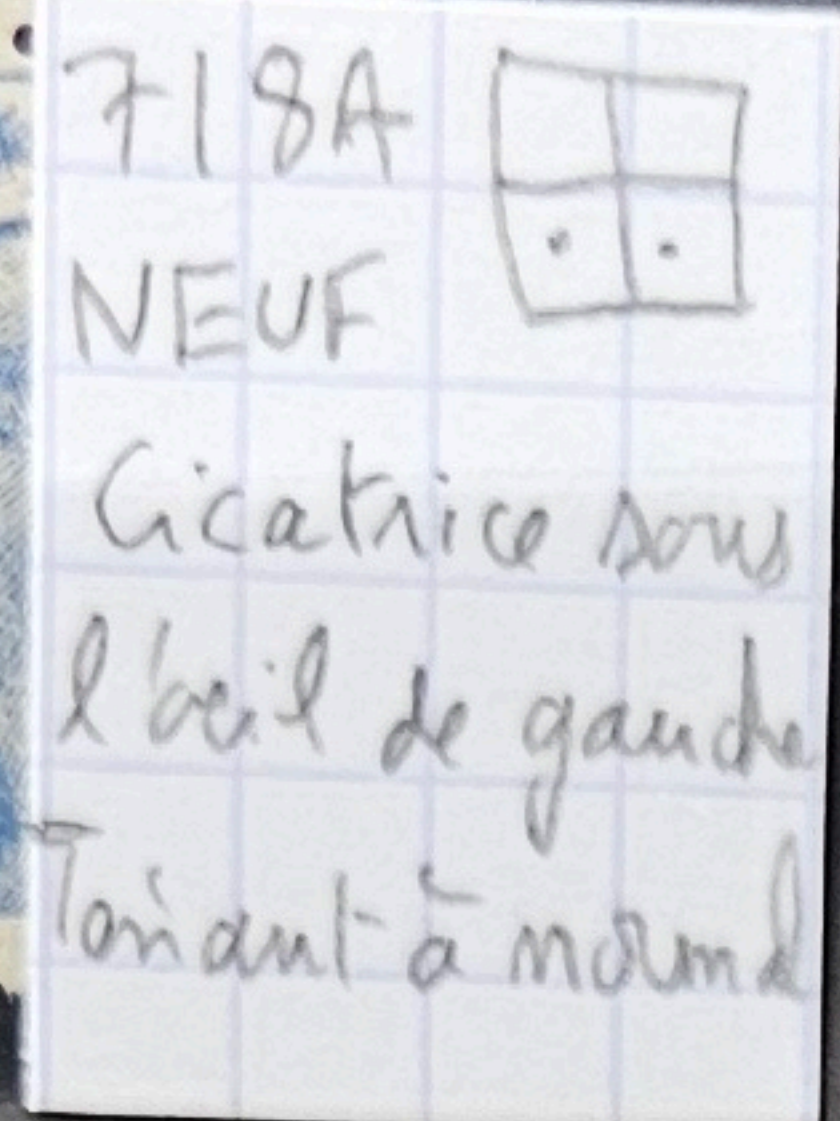 718A
NEUF
Cicatrice sous
l'oeil de gauche
Tenant à normal